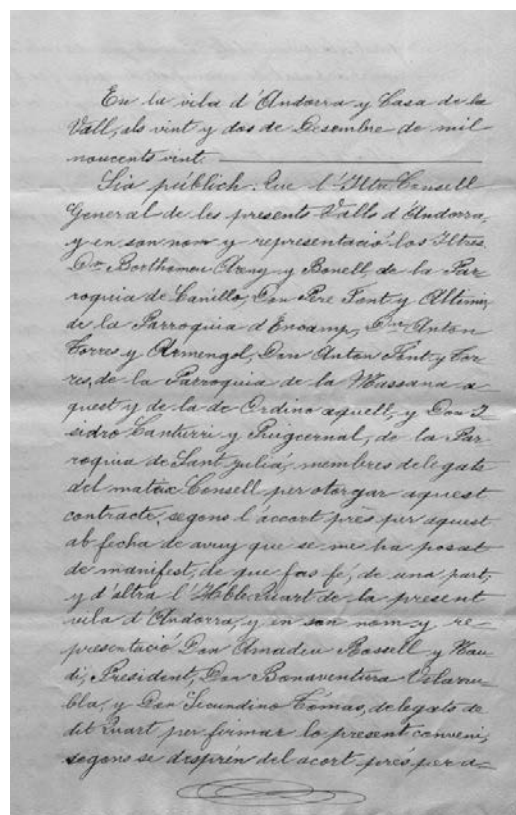 En la vila d'Andorra y Casa de la
Vall, als vint y dos de Desembre de mil
noucents vint.
Sia públich. Que l'Iltre Consell
General de les presents Valls d'Andorra,
y en son nom y representació los Iltres.
Dn. Borthomeu Areny y Bonell, de la Par
roquia de Canillo, Don Pere Font y Altimir,
de la Parroquia d'Encamp, Dn. Anton
Torres y Armengol, Don Anton Font y Tor
res, de la Parroquia de la Massana a
quest y de la de Ordino aquell, y Don I
sidro Canturri y Puigcernal, de la Par
roquia de Sant Juliá, membres delegats
del mateix Consell per otorgar aquest
contracte, segons l'accort près per aquest
ab fecha de avuy que se me ha posat
de manifest, de que fas fé, de una part;
y d'altra l'Hble. Quart de la present
vila d'Andorra, y en son nom y re-
presentació Don Amadeu Rossell y Nau
di, President, Don Bonaventura Vilarru-
bla, y Don Secundino Tomas, delegats de
dit Quart per firmar lo present conveni,
segons se desprén del acort près per a-